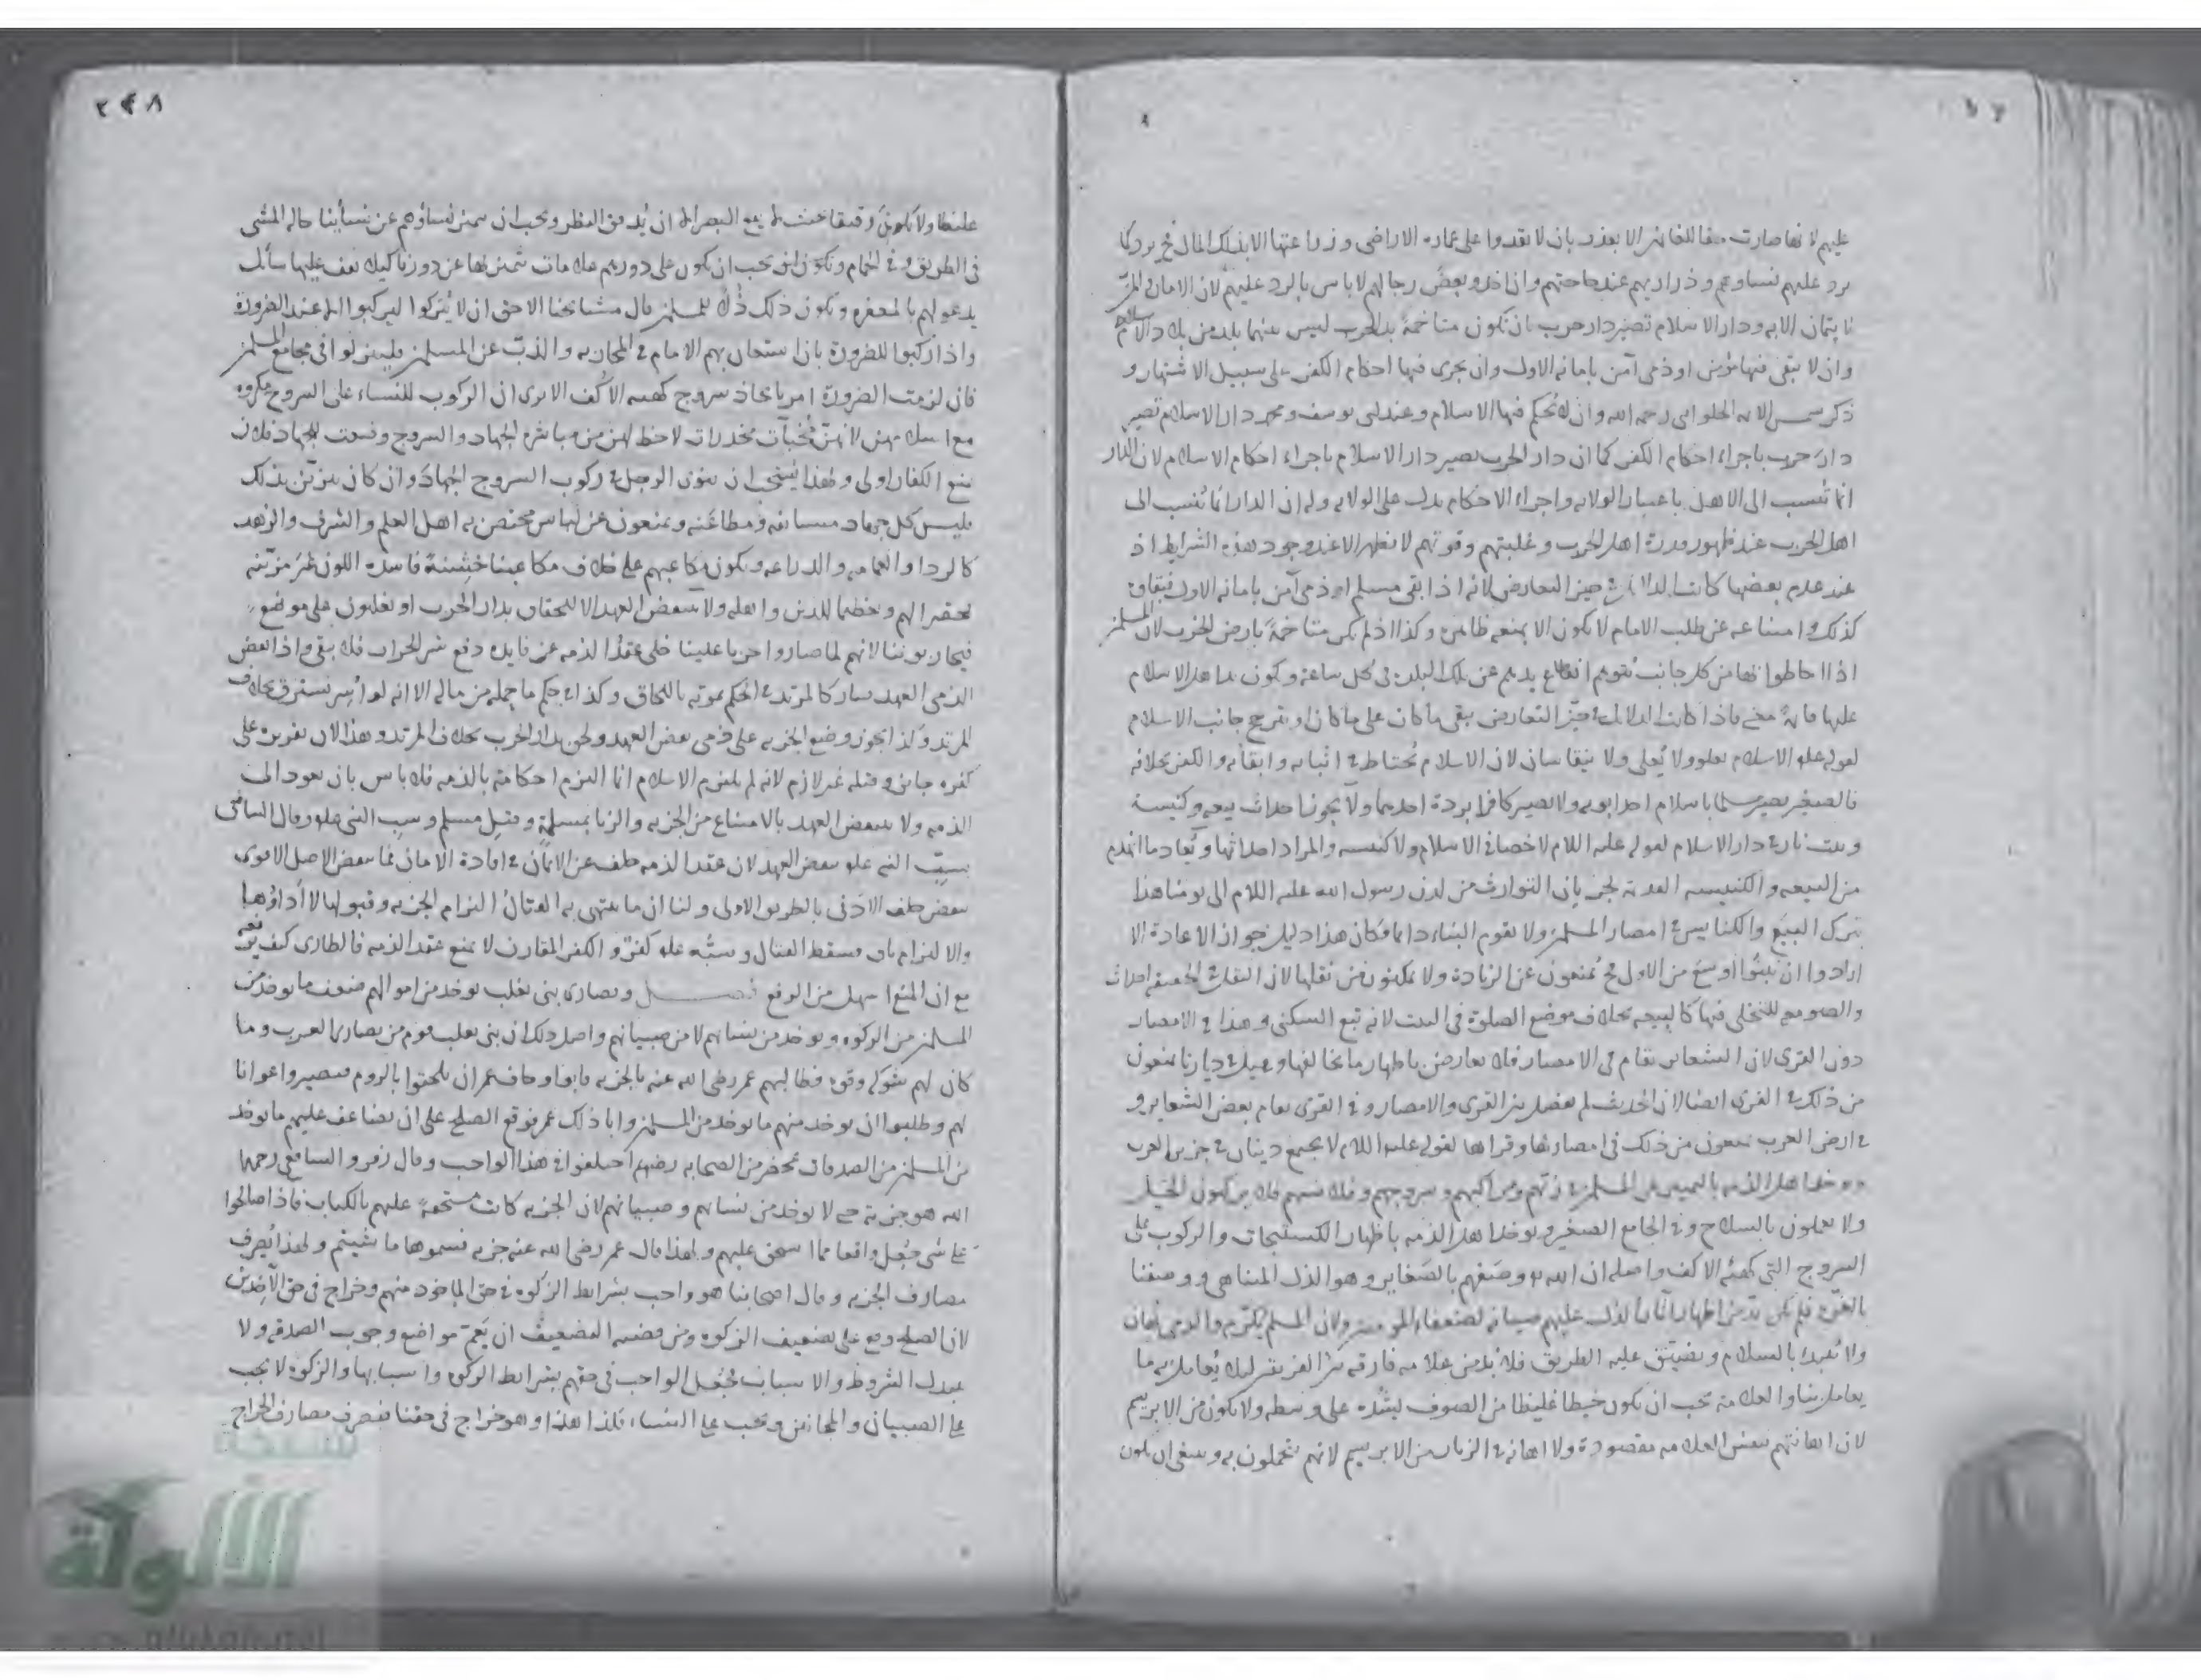 عليهم لانها صارت حقا للغانمين الا بعذر بان لا يقدروا على عمارة الاراضي وزراعتها الا بذلك المال فح يرد كما
يرد عليهم نساوهم وذراريهم عند حاجتهم وان اخذ وبعض رجالهم لا باس بالرد عليهم لان الامان المر
ودار الاسلام تصير دار حرب بان تكون متاخمة بدار الحرب ليس بينهما بلد من بلاد الاسلام
وان لا يبقى فيها مؤمن او ذمي آمن بامانه الاول وان يجرى فيها احكام الكفر على سبيل الاشتهار و
ذكر شمس الائمة الحلواني رحمه الله وان لا يحكم فيها الاسلام وعند ابي يوسف ومحمد دار الاسلام تصير
دار حرب باجراء احكام الكفر كما ان دار الحرب يصير دار الاسلام باجراء احكام الاسلام لان الدار
انما تنسب الى الاهل باعتبار الولاية واجراء الاحكام يدل على الولاية وله ان الدار انما تنسب الى
اهل الحرب عند ظهور قدرة اهل الحرب وغلبتهم وقوتهم لا تظهر الا عند وجود هذه الشرايط اذ
عند عدم بعضها كانت الدلايل في حيز التعارض لانه اذا بقي مسلم او ذمي آمن بامانه الاول فبقاؤه
كذلك وامتناعه عن طلب الامام لا يكون الا بمنعة ظاهرة وكذا اذا لم يكن متاخمة بارض الحرب لان المسلمين
اذا احاطوا بها من كل جانب يتوهم انقلاع يدهم عن تلك البلدة في كل ساعة وكون يد اهل الاسلام
عليها قائمة معنى فاذا كانت الدلايل في حيز التعارض يبقى ما كان على ما كان او يترجح جانب الاسلام
لقوله عليه الاسلام يعلو ولا يعلى ولا يتقاسان لان الاسلام يحتاط في اثباته وابقائه والكفر بخلافه
فالصغير يصير مسلما باسلام احد ابويه ولا يصير كافرا بردة احدهما ولا يجوز احداث بيعة وكنيسة
وبيت نار في دار الاسلام لقوله عليه السلام لا خصاء في الاسلام ولا كنيسة والمراد احداثها ويعاد ما انهدم
من البيعة والكنيسة القديمة لجريان التوارث من لدن رسول الله عليه السلام الى يومنا هذا
بترك البيع والكنايس في امصار المسلمين ولا يقوم البناء دائما فكان هذا دليل جواز الاعادة الا
ارادوا ان يبنوا اوسع من الاول فح يمنعون عن الزيادة ولا يمكنون من نقلها لان النقل في الحقيقة احداث
والصومعة للتخلي فيها كالبيعة بخلاف موضع الصلوة في البيت لانه تبع السكنى وهذا في الامصار
دون القرى لان الشعاير تقام في الامصار فلا يعارض باظهار ما يخالفها وقيل في ديارنا يمنعون
من ذلك في القرى ايضا لان الحديث لم يفصل بين القرى والامصار وفي القرى يقام بعض الشعاير و
في ارض العرب يمنعون من ذلك في امصارها وقراها لقوله عليه السلام لا يجتمع دينان في جزيرة العرب
ويوخذ اهل الذمة بالتمييز عن المسلمين في زيهم ومراكبهم وسروجهم وقلانسهم فلا يركبون الخيل
ولا يعملون بالسلاح وفي الجامع الصغير ويوخذ اهل الذمة باظهار الكستيجات والركوب على
السروج التي كهيئة الاكف واصله ان الله وصفهم بالصغاير وهو الذل المتناهي ووصفنا
بالعزة فلم يكن بد من اظهار آثار الذل عليهم صيانة لضعفاء المؤمنين ولان المسلم يكرم والذمي يهان
ولا يبدا بالسلام ويضيق عليه الطريق فلا بد من علامة فارقة بين الفريقين ليلا يعامل به ما
يعامل بنا والعلامة يجب ان يكون خيطا غليظا من الصوف ليشده على وسطه ولا يكون من الابريسم
لان اهانتهم بهذه العلامة مقصودة ولا اهانة في الزنار من الابريسم لانهم يتجملون به وينبغي ان يكون
٢٤٨
غليظا ولا يكون رقيقا بحيث لا يقع البصر الا ان يدقق النظر ويجب ان يتميز نساؤهم عن نسائنا حالة المشي
في الطريق وفي الحمام ويجب ان يكون على دورهم علامات يتميز بها عن دورنا كيلا يقف عليها سائل
يدعو لهم بالمغفرة ويكون ذلك ذلا للمسلمين قال مشايخنا الاحق ان لا يتركوا ليركبوا الا عند الضرورة
واذا ركبوا للضرورة بان استعان بهم الامام في المحاربة والذب عن المسلمين فلينزلوا في مجامع المسلمين
فان لزمت الضرورة امر باتخاذ سروج كهيئة الاكف الا يرى ان الركوب للنساء على السروج مكروه
لانهن مخبآت مخدرات لا حظ لهن من مباشرة الجهاد والسروج وضعت للجهاد فلان
يمنع الكفار اولى ولهذا يستحب ان ينوي الرجل في ركوب السروج الجهاد وان كان يتزين بذلك
ويمنعون عن لباس مختص به اهل العلم والشرف والزهد
كالرداء والعمامة والدراعة ويكون مكاعبهم على خلاف مكاعبنا خشنة فاسدة اللون غير مزينة
تحقيرا لهم وتعظيما للدين واهله ولا ينتقض العهد الا باللحاق بدار الحرب او يغلبون على موضع
فيحاربوننا لانهم لما صاروا حربا علينا خلى عقد الذمة عن فايدة دفع شر الحراب فلا يبقى واذا نقض
الذمي العهد صار كالمرتد في الحكم بموته باللحاق وكذا في حكم ما حمله من ماله الا انه لو اسر يسترق بخلاف
المرتد وكذا يجوز وضع الجزية على ذمي نقض العهد ولحق بدار الحرب بخلاف المرتد وهذا لان تقريره على
كفره جايز وقتله غير لازم لانه لم يلتزم الاسلام انما التزم احكامه بالذمة فلا باس بان يعود الى
الذمة ولا ينتقض العهد بالامتناع من الجزية والزنا بمسلمة وقتل مسلم وسب النبي علم وقال الشافعي
بسب النبي علم ينتقض العهد لان عقد الذمة خلف عن الايمان في افادة الامان فما ينقض الاصل الاقوى
ينقض خلفه الادنى بالطريق الاولى ولنا ان ما ينتهي به القتال التزام الجزية وقبولها لا اداؤها
والالتزام باق فسقط القتال وسبه علم كفر والكفر المقارن لا يمنع عقد الذمة فالطارى كيف يرفعه
مع ان المنع اسهل من الرفع فصل ونصارى بني تغلب يوخذ من اموالهم ضعف ما يوخذ من
المسلمين من الزكوة ويوخذ من نسائهم لا من صبيانهم واصل ذلك ان بني تغلب قوم من نصارى العرب وما
كان لهم شوكة وقوة فطالبهم عمر رضي الله عنه بالجزية فابوا وخاف عمر ان يلحقوا بالروم فيصيروا اعوانا
لهم وطلبوا ان يوخذ منهم ما يوخذ من المسلمين وابا ذلك عمر فوقع الصلح على ان يضاعف عليهم ما يوخذ
من المسلمين من الصدقات بمحضر من الصحابة رضيهم اختلفوا في هذا الواجب وقال زفر والشافعي رحمهما
الله هو جزية حتى لا يوخذ من نسائهم وصبيانهم لان الجزية كانت مستحقة عليهم بالكتاب فاذا صالحوا
على شي جعل واقعا مما استحق عليهم ولهذا قال عمر رضي الله عنه جزية فسموها ما شيتم ولهذا يصرف
مصارف الجزية وقال اصحابنا هو واجب بشرايط الزكوة في حق الماخوذ منهم وخراج في حق الآخذين
لان الصلح وقع على تضعيف الزكوة ومن قضية التضعيف ان يعم مواضع وجوب الصدقة ولا
يبدل الشروط والاسباب فجعل الواجب في حقهم بشرايط الزكوة واسبابها والزكوة لا يجب
على الصبيان والمجانين ويجب على النساء فكذا هذا وهو خراج في حقنا فيصرف مصارف الخراج
شبكة
الألوكة
www.alukah.net